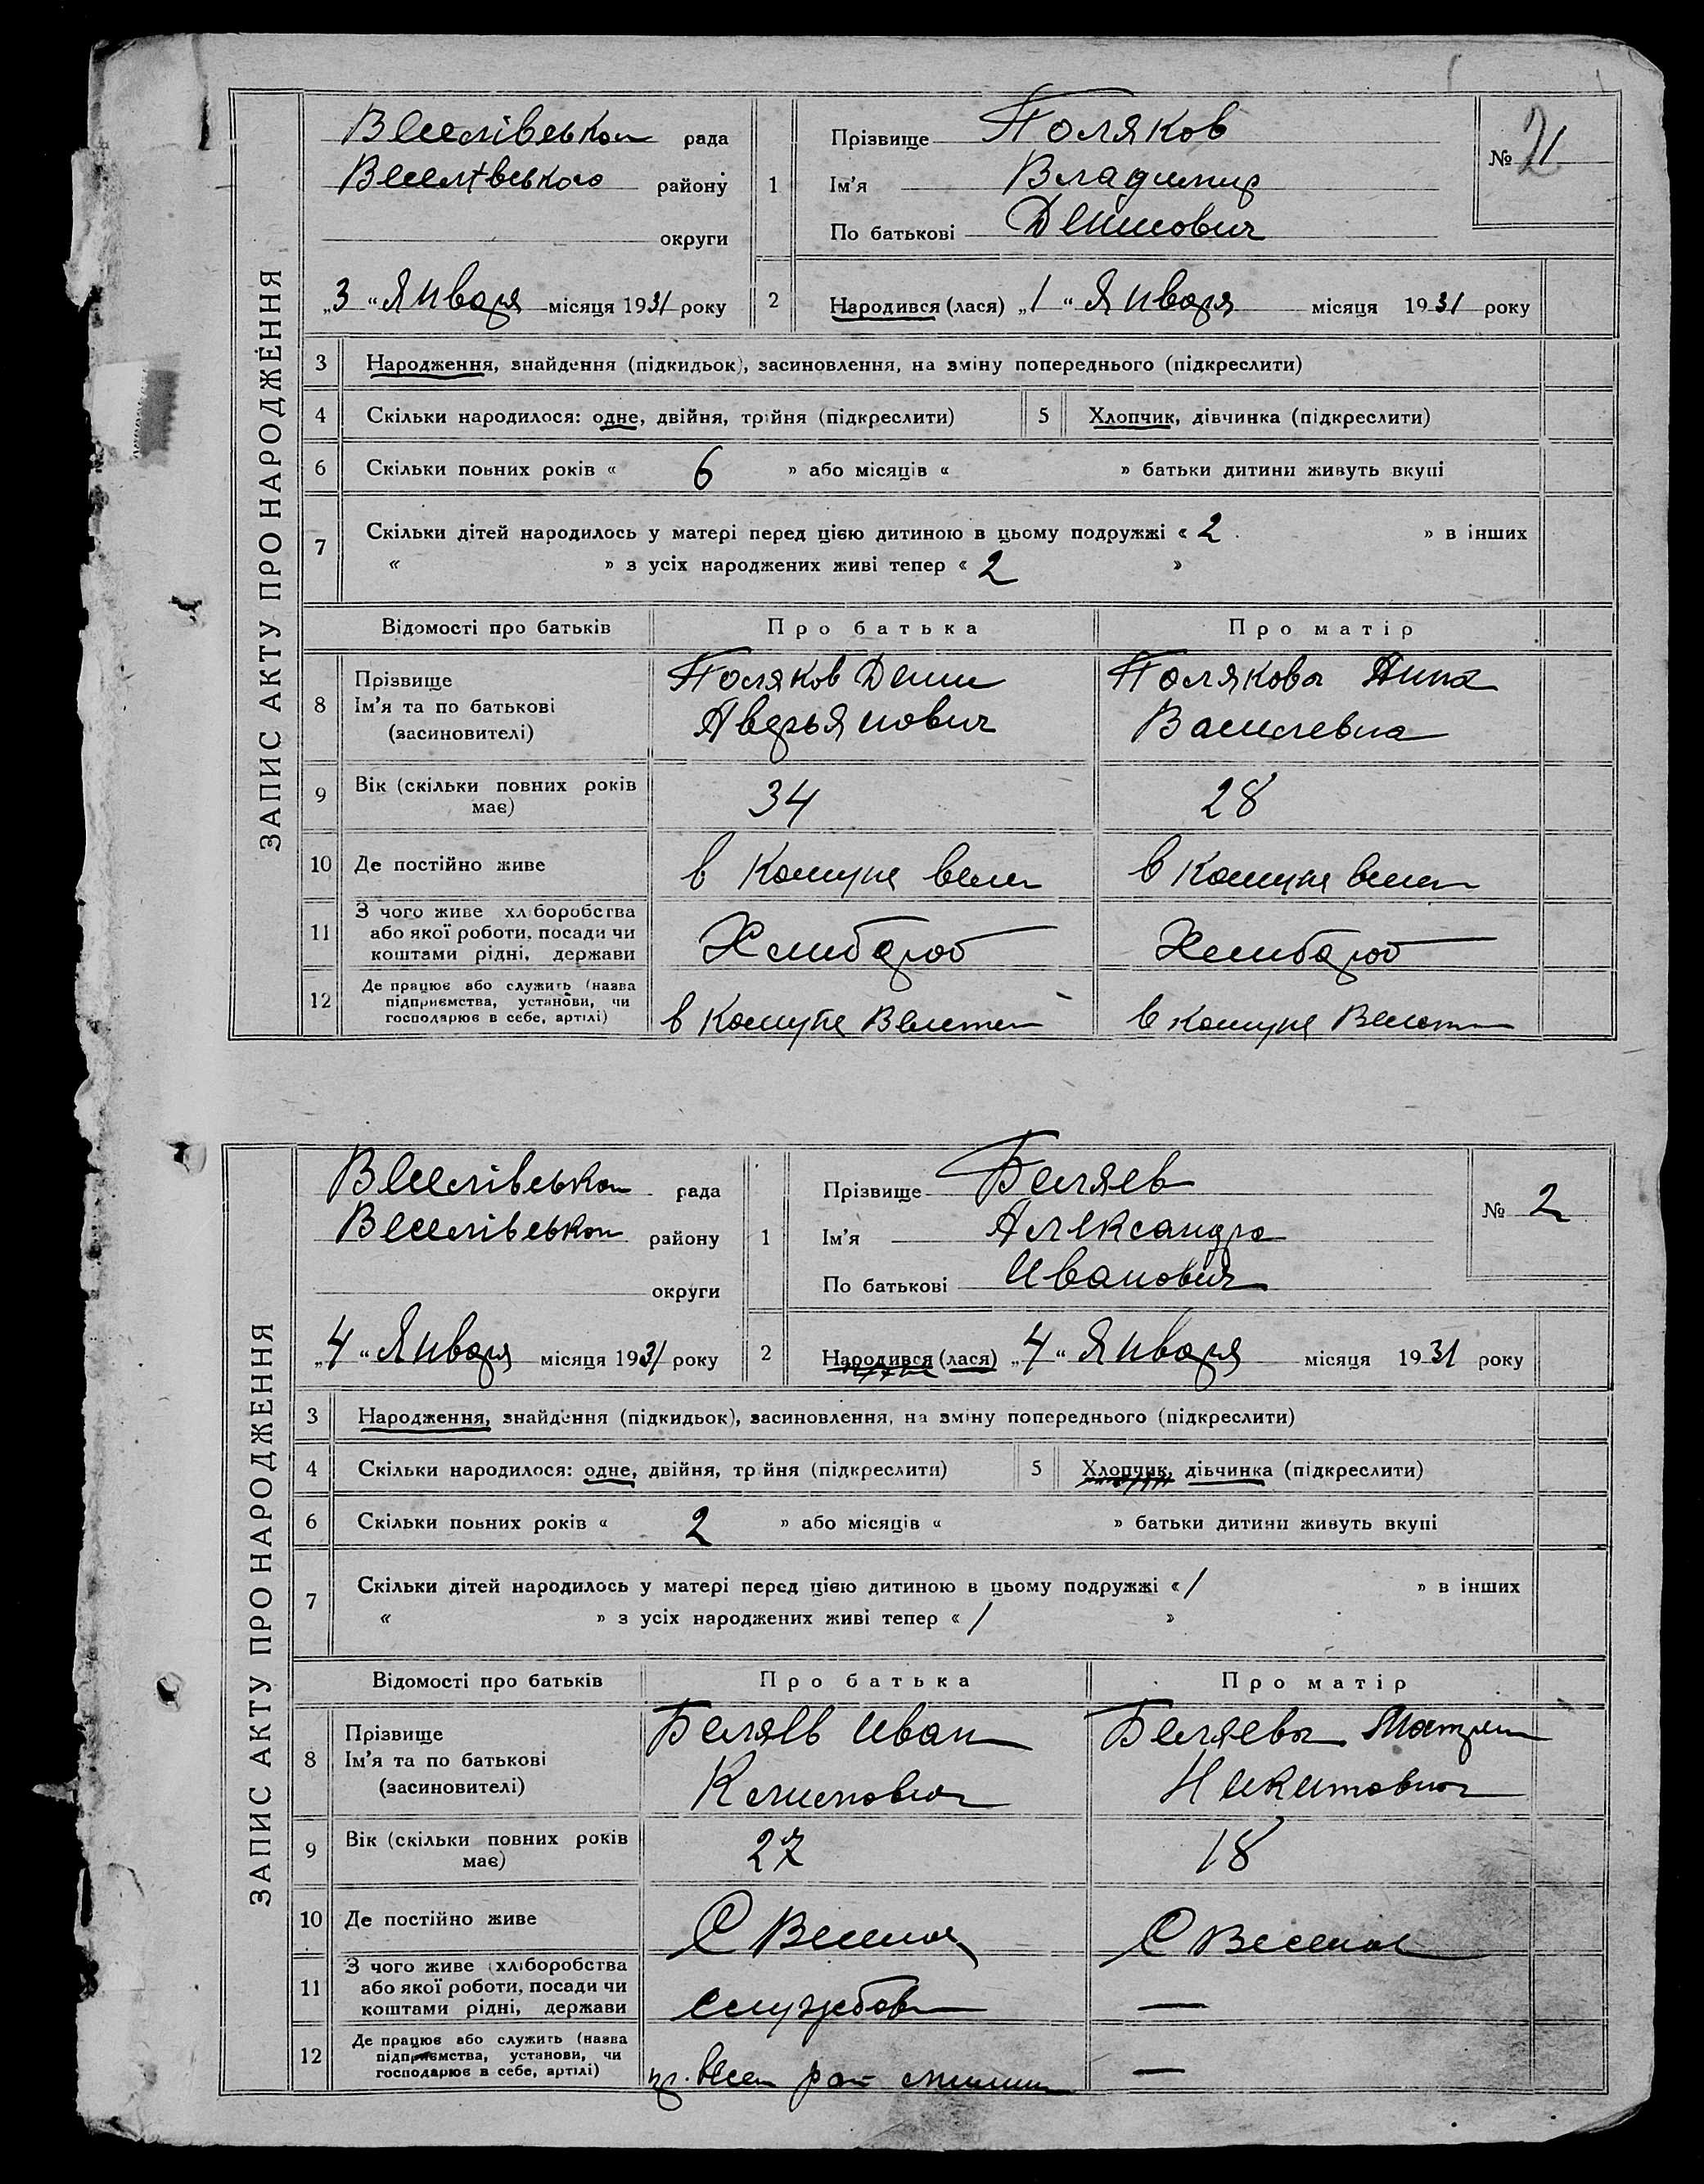 ЗАПИС АКТУ ПРО НАРОДЖЕННЯ
Веселівськои рада
Веселівського району
округи
„3“ Января місяця 1931 року
1 Прізвище Поляков
Ім'я Владимир
По батькові Денисович
№ 1
2 Народився (лася) „1“ Января місяця 1931 року
3 Народження, знайдення (підкидьок), засиновлення, на зміну попереднього (підкреслити)
4 Скільки народилося: одне, двійня, трійня (підкреслити) 5 Хлопчик, дівчинка (підкреслити)
6 Скільки повних років « 6 » або місяців « » батьки дитини живуть вкупі
7 Скільки дітей народилось у матері перед цією дитиною в цьому подружжі « 2 » в інших
« » з усіх народжених живі тепер « 2 »
Відомості про батьків Про батька Про матір
8 Прізвище Ім'я та по батькові (засиновителі)
Поляков Денис Аверьянович
Полякова Анна Василевна
9 Вік (скільки повних років має) 34 28
10 Де постійно живе в Комуне в Комуне
11 З чого живе хліборобства або якої роботи, посади чи коштами рідні, держави
Хлибароб Хлибароб
12 Де працює або служить (назва підприємства, установи, чи господарює в себе, артілі)
в Комуне в комуне
ЗАПИС АКТУ ПРО НАРОДЖЕННЯ
Веселівськои рада
Веселівськои району
округи
„4“ Января місяця 1931 року
1 Прізвище Беляев
Ім'я Александра
По батькові Иванович
№ 2
2 Народився (лася) „4“ Января місяця 1931 року
3 Народження, знайдення (підкидьок), засиновлення, на зміну попереднього (підкреслити)
4 Скільки народилося: одне, двійня, трійня (підкреслити) 5 Хлопчик, дівчинка (підкреслити)
6 Скільки повних років « 2 » або місяців « » батьки дитини живуть вкупі
7 Скільки дітей народилось у матері перед цією дитиною в цьому подружжі « 1 » в інших
« » з усіх народжених живі тепер « 1 »
Відомості про батьків Про батька Про матір
8 Прізвище Ім'я та по батькові (засиновителі)
Беляев Иван
Беляева
9 Вік (скільки повних років має) 27 18
10 Де постійно живе С Весело С Весело
11 З чого живе (хліборобства або якої роботи, посади чи коштами рідні, держави
—
12 Де працює або служить (назва підприємства, установи, чи господарює в себе, артілі)
—